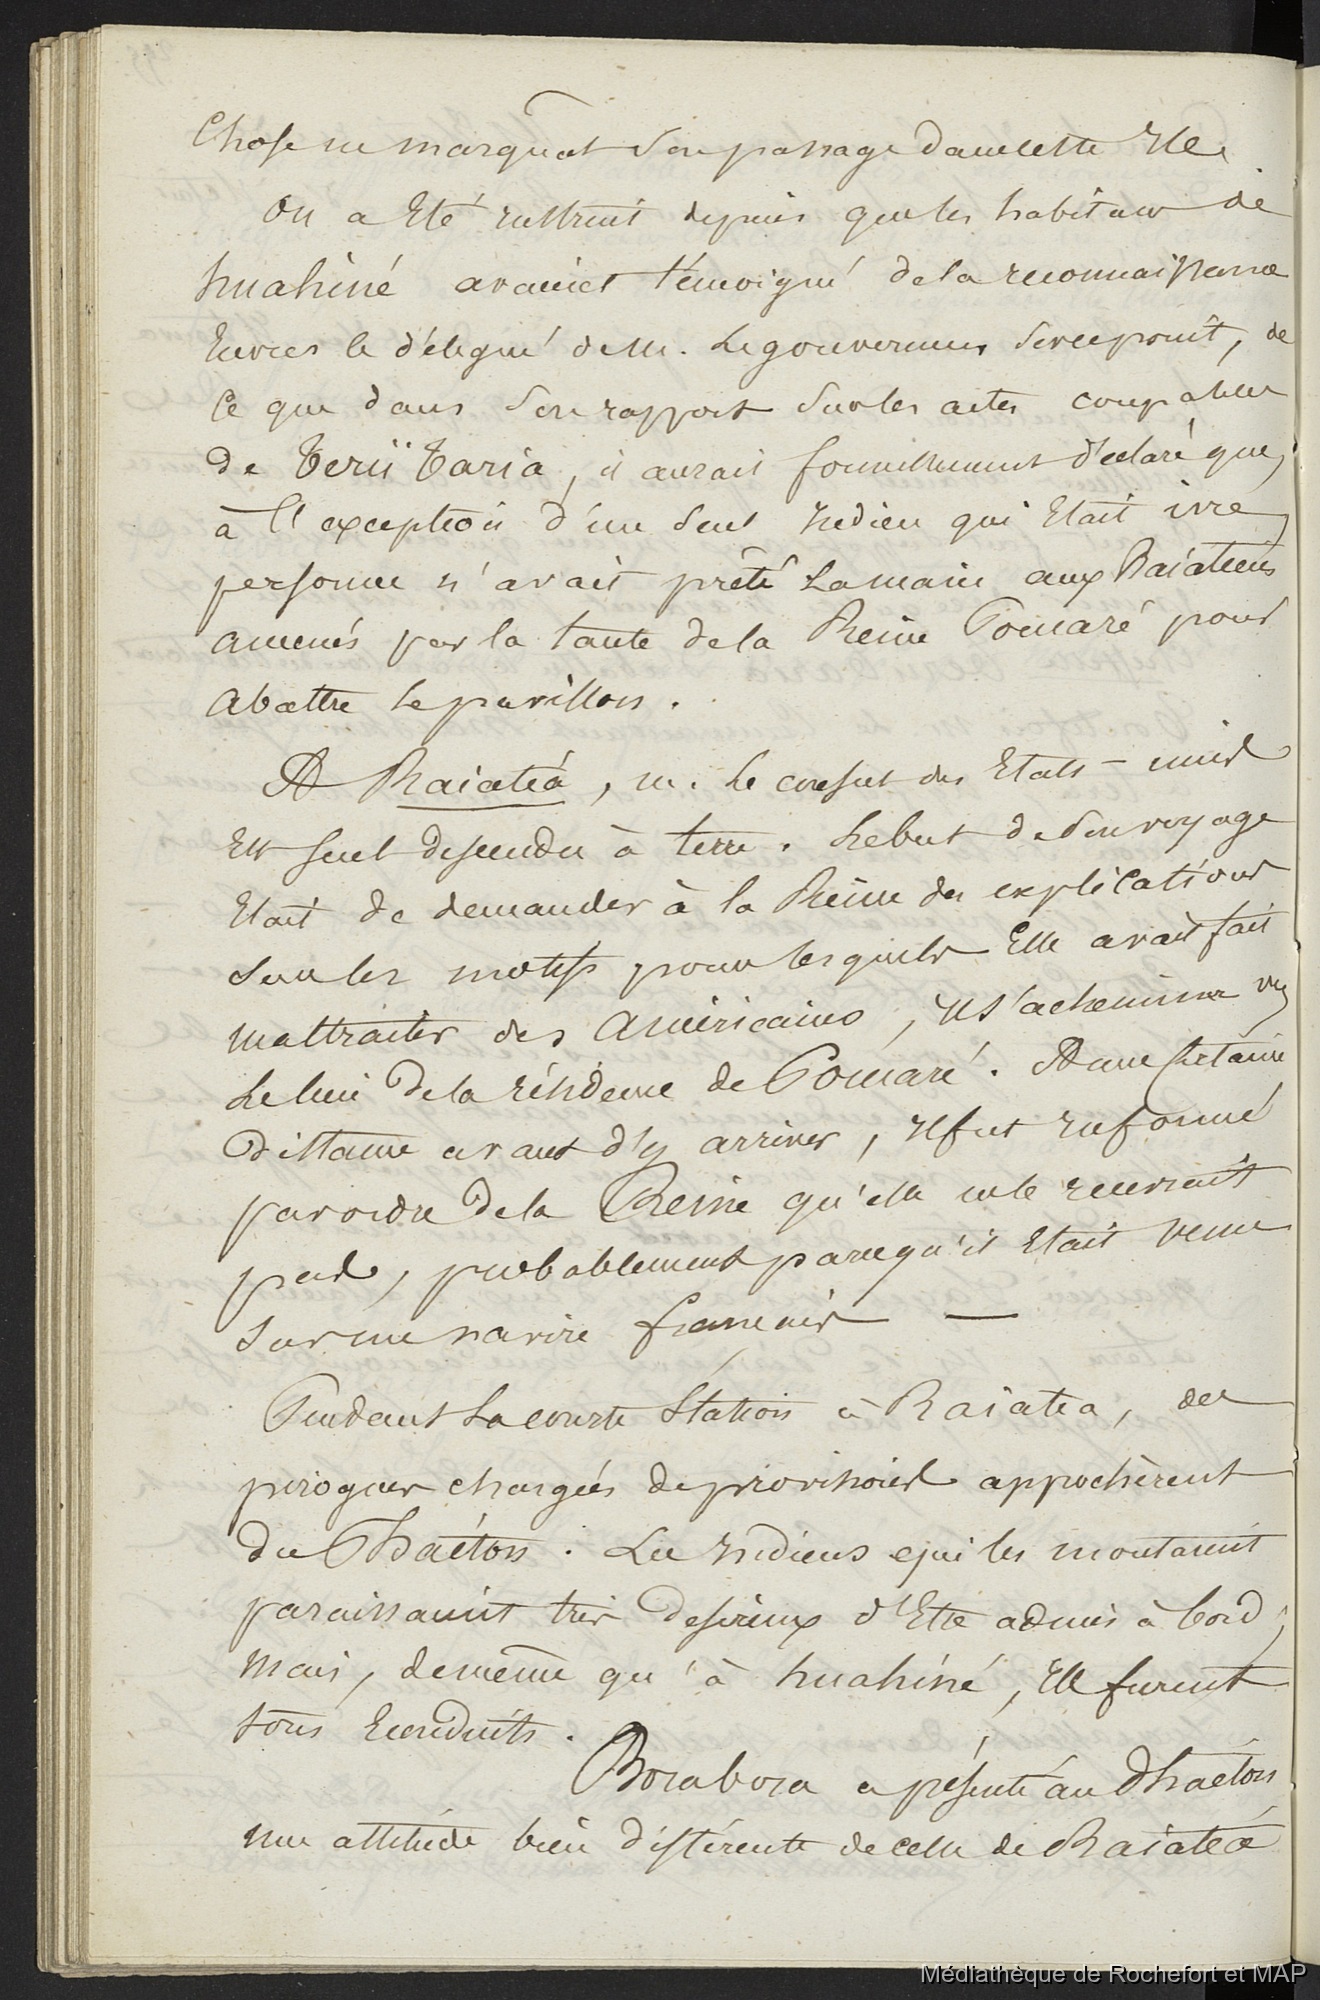 Chose ne marquat son passage dans cette Ile.
On a Eté instruit depuis que les habitans de
huahiné avaient témoigné de la reconnaissance
Envers le délégué de M. Le gouverneur
Ce que dans son rapport sur les actes coupables
de Terii Taria, il aurait formellement déclaré que,
à l'exception d'un seul Indien qui Etait ivre,
personne n'avait prêté La main aux Raiatéens
amenés par la tante de la Reine Pomaré pour
abattre le pavillon.
A Raiatéa, M. Le consul des Etats-unis
Est seul descendu à terre. Le but de son voyage
Etait de demander à la Reine des explications
Sur les motifs pour lesquels Elle avait fait
maltraiter des américains, Il s'achemina vers
Le lieu de la résidence de Pomaré. A une certaine
distance avant d'y arriver, Il fut informé
par ordre de la Reine qu'elle ne le recevrait
pas, probablement parcequ'il Etait venu
Sur un navire français —
Pendant La courte Station à Raiatea, des
pirogues chargées de provisions approchèrent
du Phaéton. Les Indiens qui les montaient
paraissaient très desireux d'Etre admis à bord,
mais, de même qu'à huahiné, Ils furent
tous Econduits.
Borabora a présenté au Phaéton
une attitude bien différente de celle de Raiatéa
Médiathèque de Rochefort et MAP